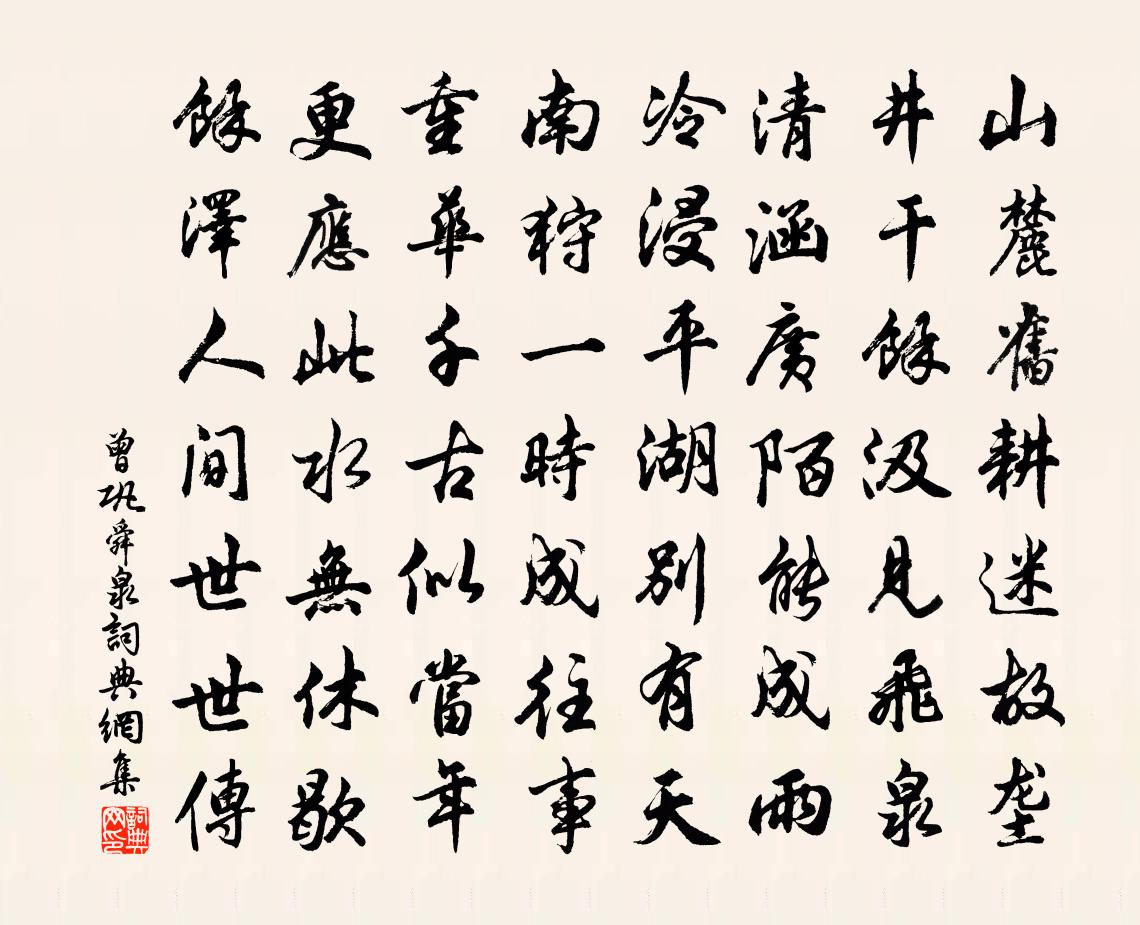 山麓舊耕迷故垄
井干餘汲見飛泉
清涵廣陌能成雨
冷浸平湖別有天
南狩一時成往事
重華千古似當年
更應此水無休歇
餘澤人间世世傳
曾巩舜泉詞典網集
詞典网印